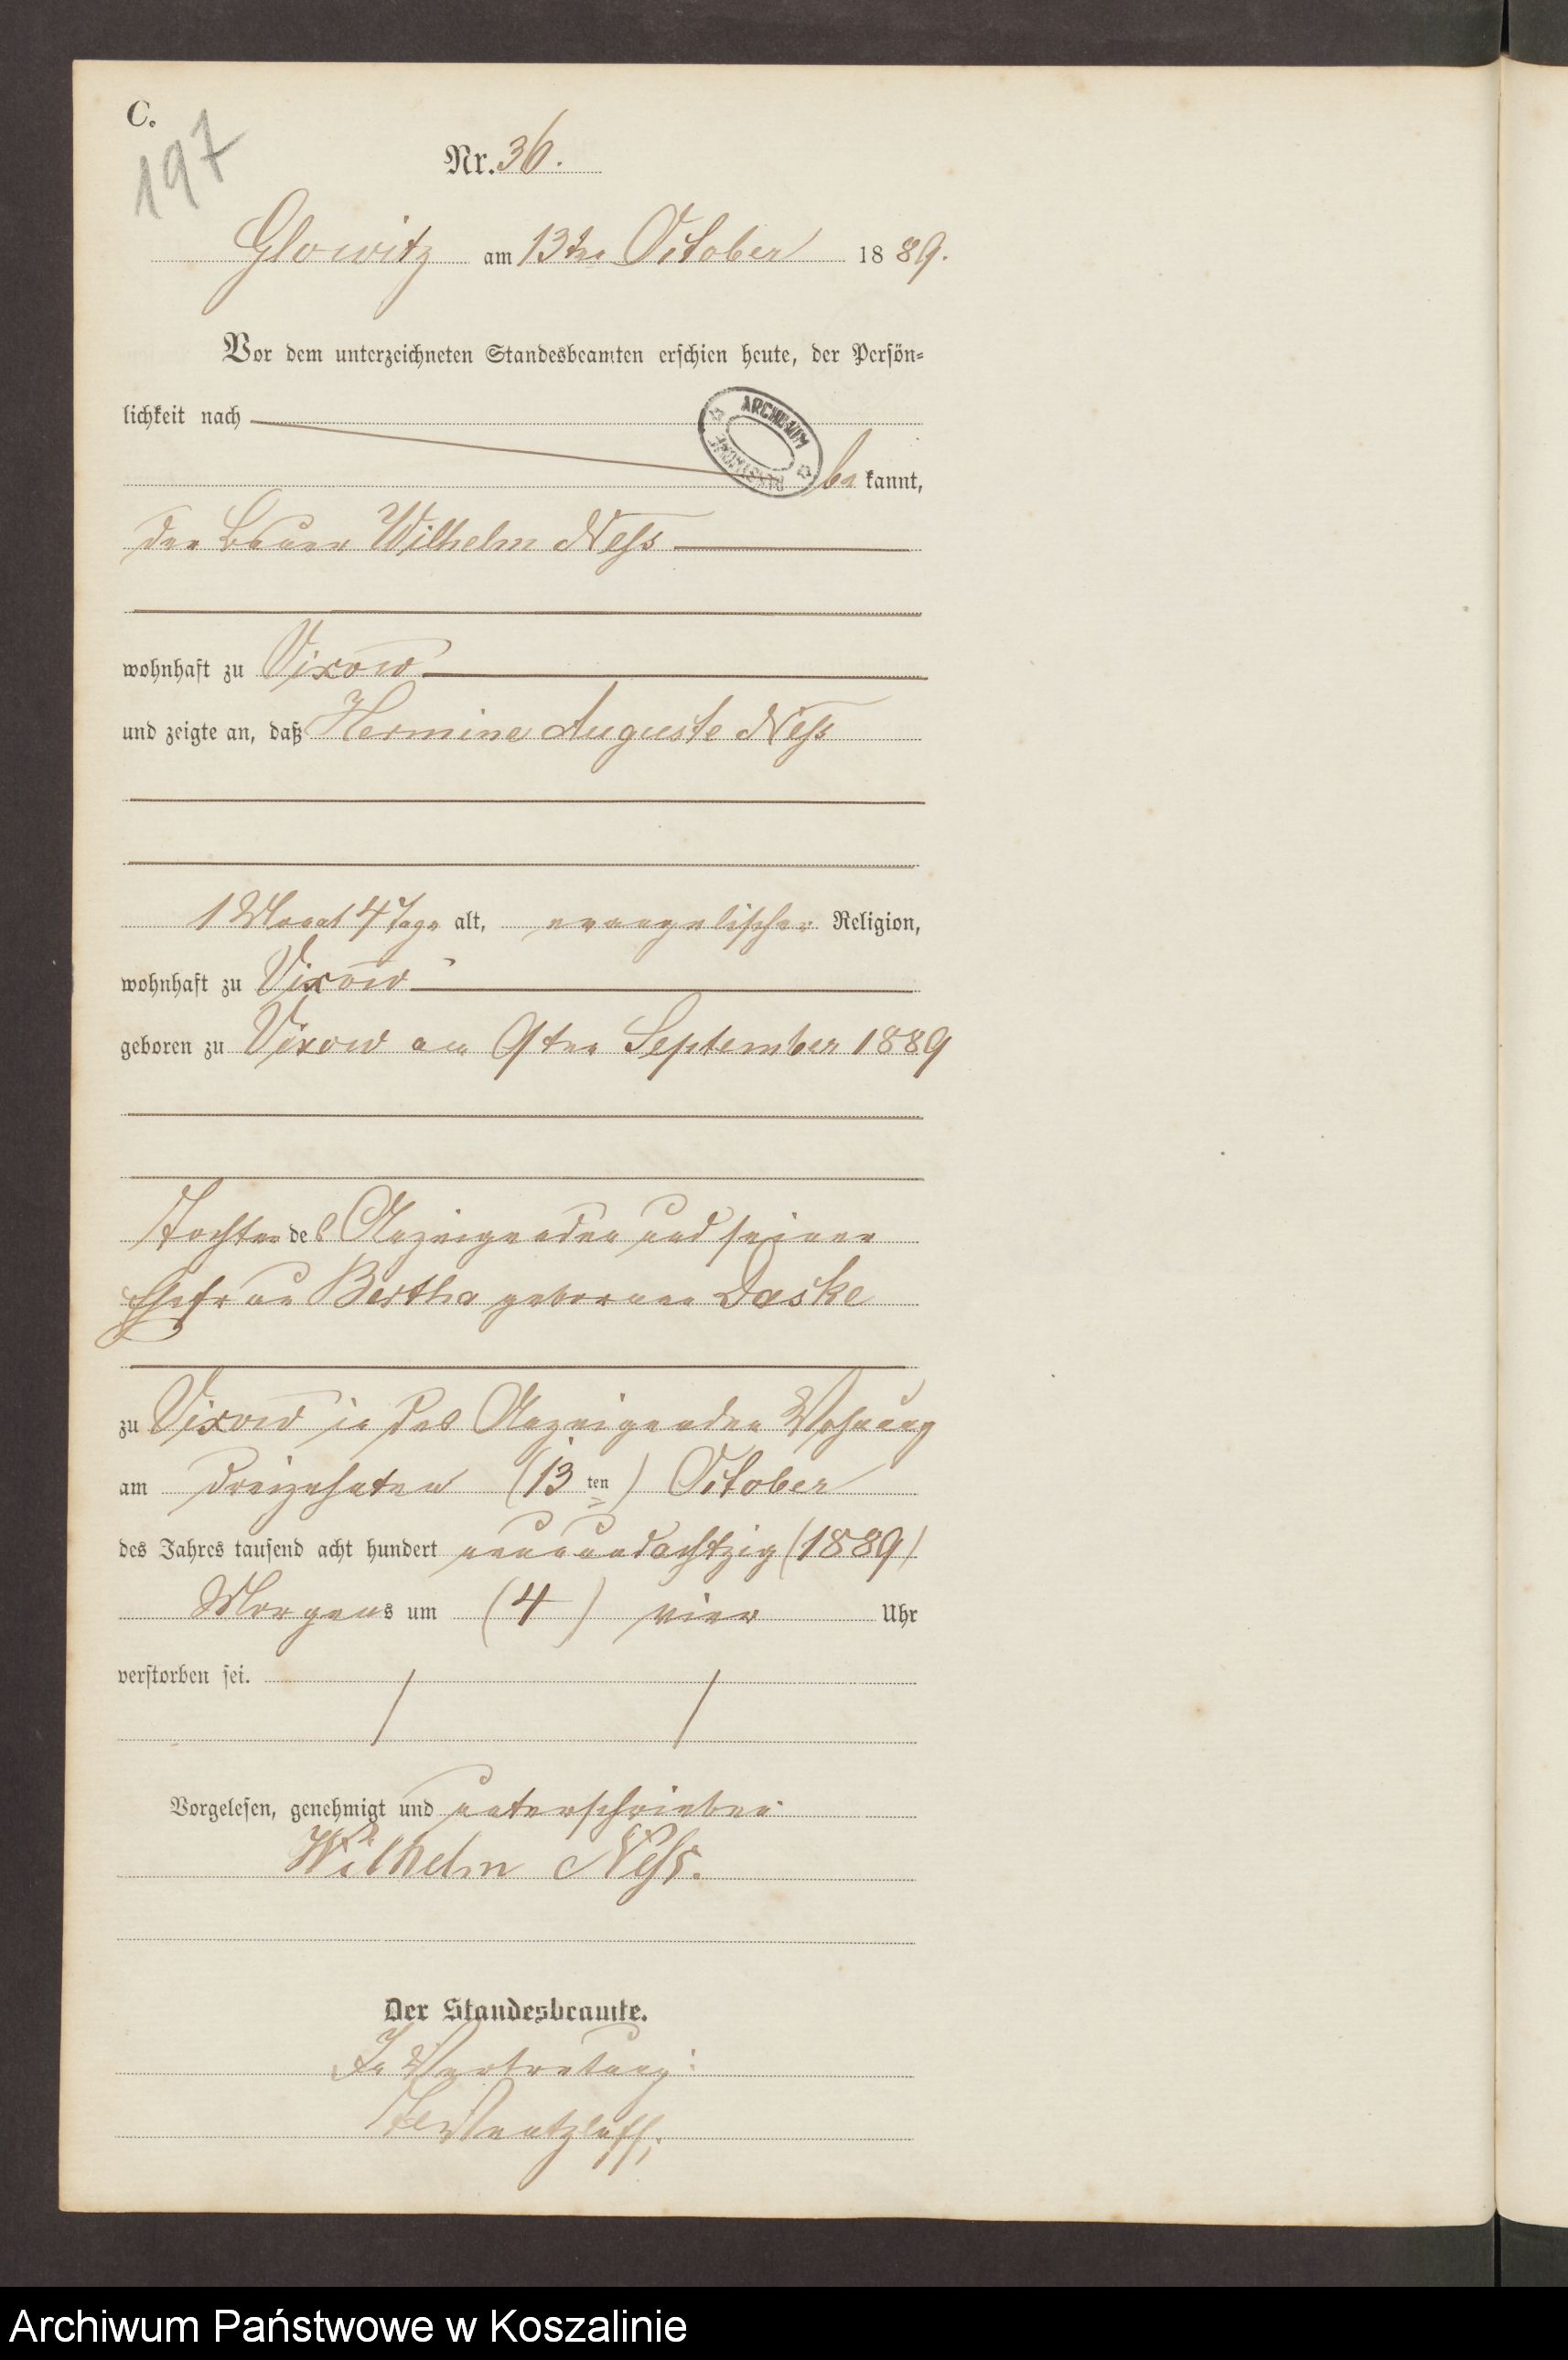 C.
197
Nr. 36.
Glowitz am 13ten October 1889.
Vor dem unterzeichneten Standesbeamten erschien heute, der Persön-
lichkeit nach
ARCHIWUM
be kannt,
der Bauer Wilhelm Neſs
wohnhaft zu Vixow
und zeigte an, daß Hermine Auguste Neſs
1 Monat 4 Tage alt, evangelischer Religion,
wohnhaft zu Vixow
geboren zu Vixow am 9ten September 1889
Tochter des Anzeigenden und seiner
Ehefrau Bertha geborenen Daske
zu Vixow in des Anzeigenden Wohnung
am dreizehnten (13 ten) October
des Jahres tausend acht hundert neunundachtzig (1889)
Morgens um (4) vier Uhr
verstorben sei.
Vorgelesen, genehmigt und unterschrieben
Wilhelm Neſs.
Der Standesbeamte.
In Vertretung:
Archiwum Państwowe w Koszalinie